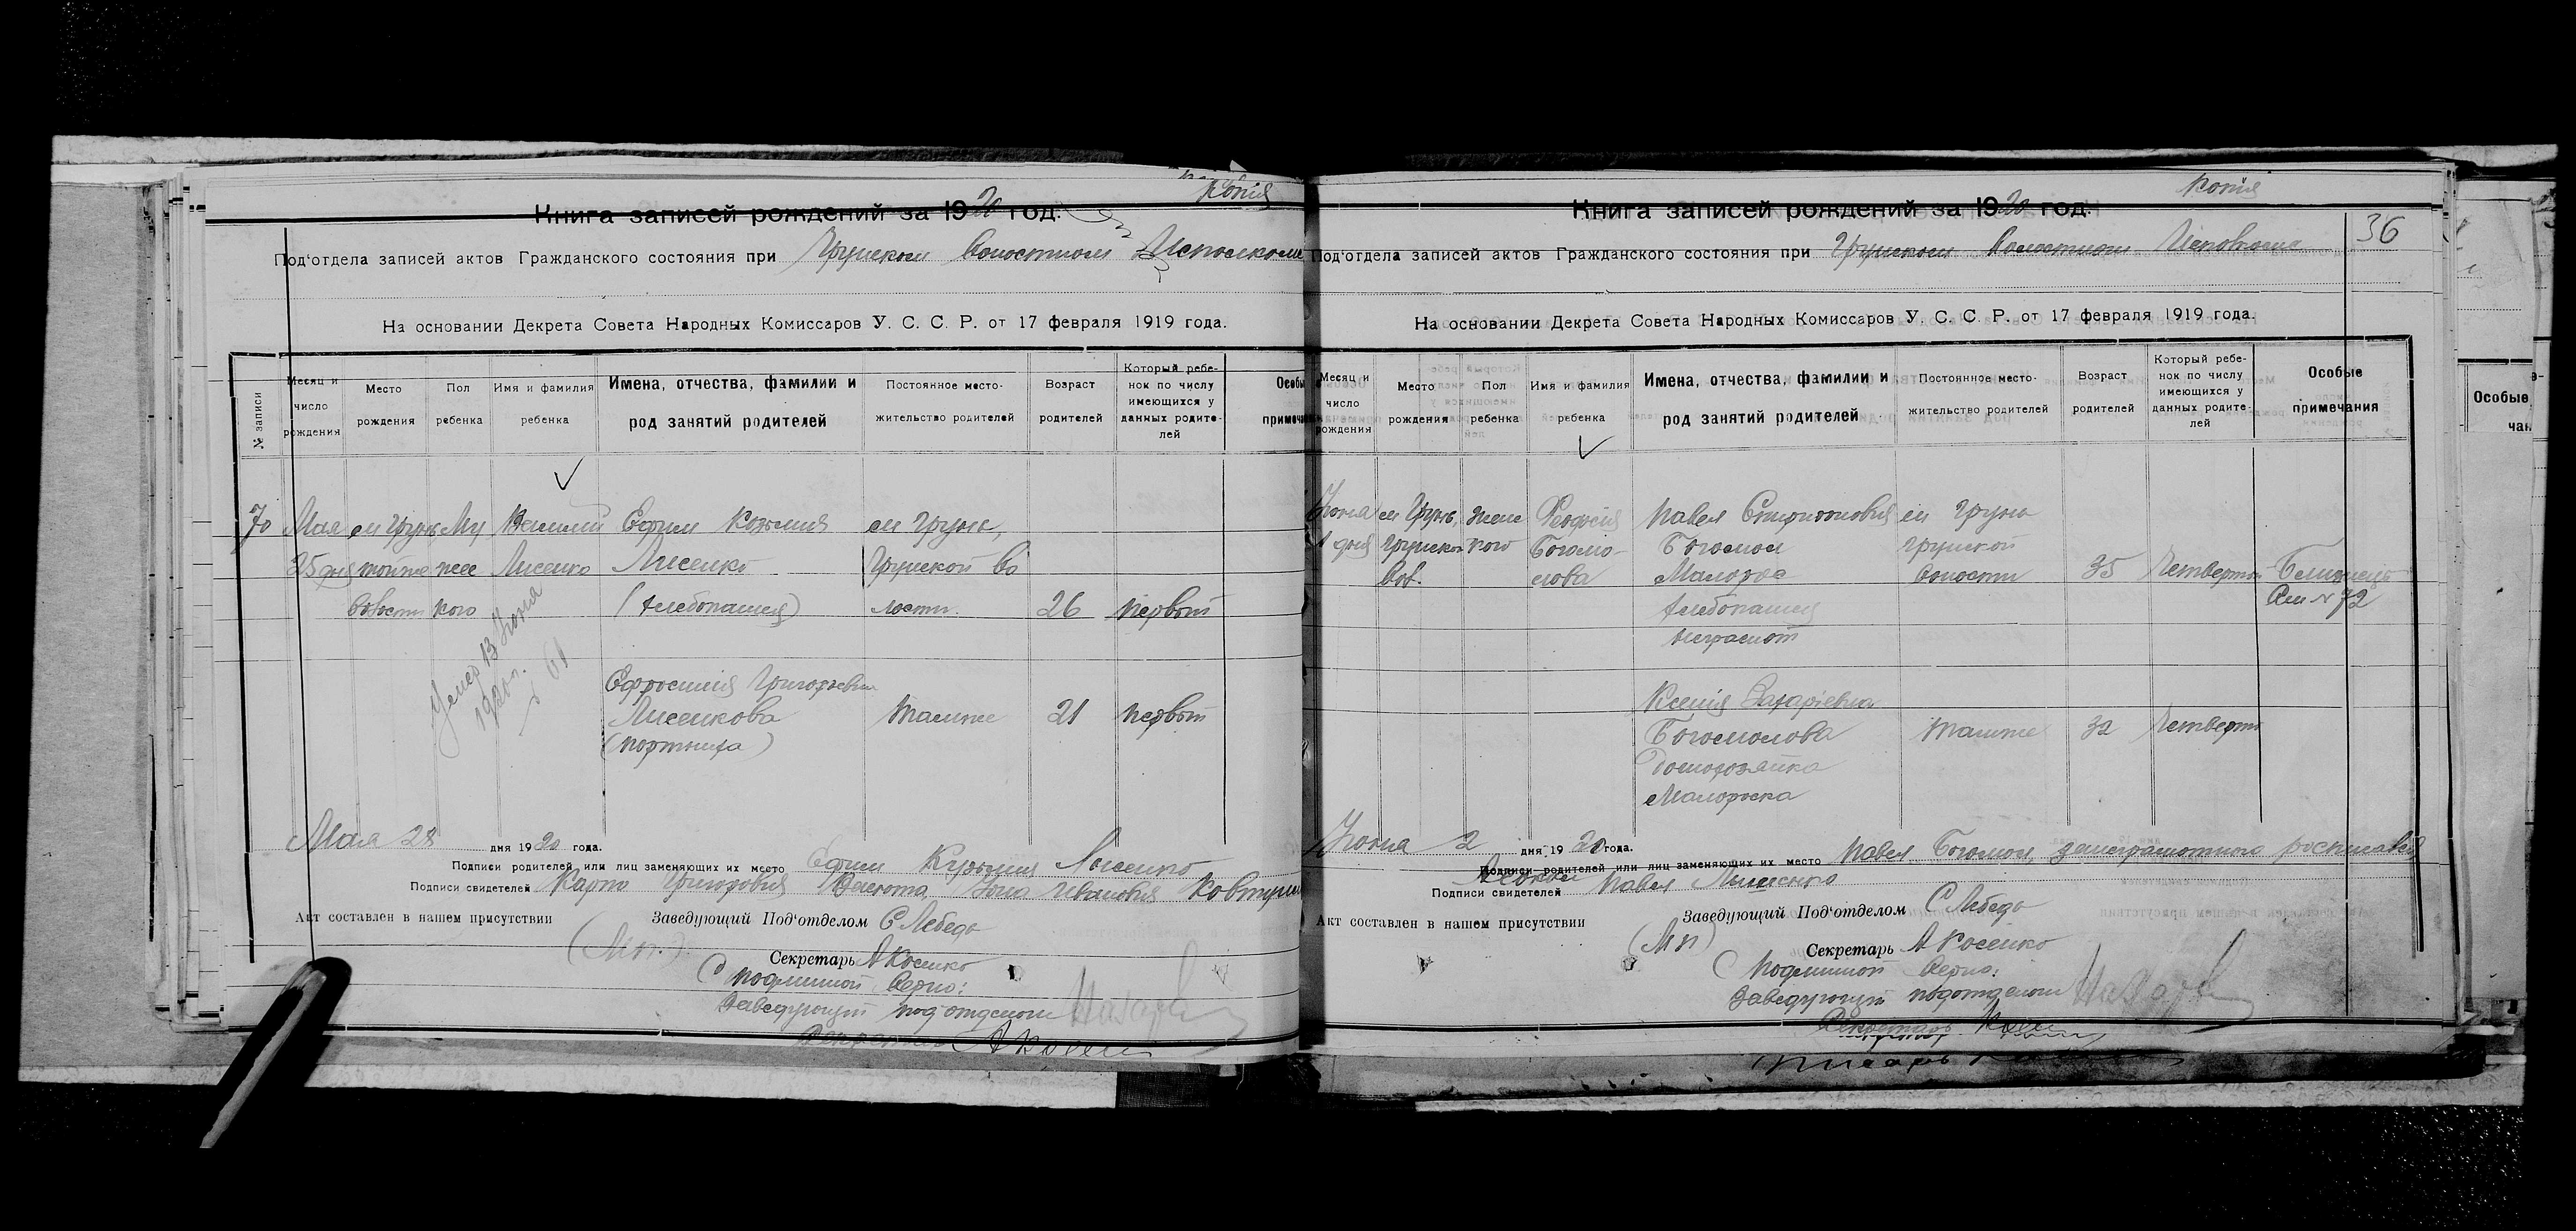 Копия
Книга записей рождений за 1920 год.
Под'отдела записей актов Гражданского состояния при Грунском Волостном Исполкоме
На основании Декрета Совета Народных Комиссаров У. С. С. Р. от 17 февраля 1919 года.
№ записи
Месяц и число рождения
Место рождения
Пол ребенка
Имя и фамилия ребенка
Имена, отчества, фамилии и род занятий родителей
Постоянное место-жительство родителей
Возраст родителей
Который ребе-нок по числу имеющихся у данных родите-лей
Особы
примеч
70 Мая м Грунь, Му Василий Ефим Козьмич м Грунь,
25 дня тойже жес Лисенко Лисенко Грунской во
волости кого (хлебопашец) лости. 26 первый
Умер 13 Июня
1920 г.
61
Ефросиния Григорьевна
Лисенкова тамже 21 первый
(портниха)
Мая 28 дня 1920 года.
Подписи родителей или лиц заменяющих их место Ефим Кузьмич Лысенко
Подписи свидетелей Карпо Григорович Иванович Ковтун
Акт составлен в нашем присутствии Заведующий Под'отделом С Лебедь
(М п.)
Секретарь А Косенко
С подлинной верно:
Заведующий под'отделом
Копия
36
Книга записей рождений за 1920 год.
Под'отдела записей актов Гражданского состояния при Грунском Волостном Исполкоме
На основании Декрета Совета Народных Комиссаров У. С. С. Р. от 17 февраля 1919 года.
Месяц и число рождения
Место рождения
Пол ребенка
Имя и фамилия ребенка
Имена, отчества, фамилии и род занятий родителей
Постоянное место-жительство родителей
Возраст родителей
Который ребе-нок по числу имеющихся у данных родите-лей
Особые примечания
Июня м Грунь, женс Феодосия Павел Спиридонович м Грунь
1 дня Грунской кого Богомо- Богомол Грунской
вол. лова Малорос волости 35 Четвертой Близнецы
хлебопашец См № 72
неграмот
Ксения Захаріевна
Богомолова тамже 32 Четверты
Домохозяйка
Малороска
Июня 2 дня 1920 года.
Подписи родителей или лиц заменяющих их место Павел Богомол, занеграмотного росписался
Подписи свидетелей Павел
Акт составлен в нашем присутствии Заведующий Под'отделом С Лебедь
(М п)
Секретарь А Косенко
С подлинной верно:
Заведующий подотделом
Секретарь
Особые
чан